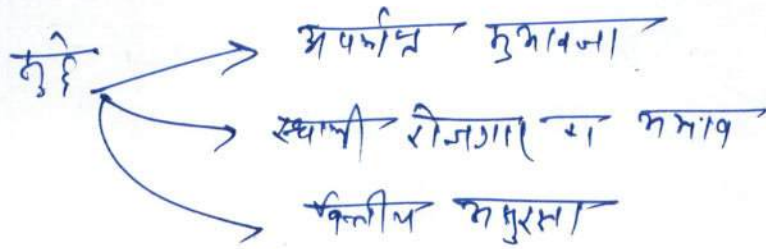 मुद्दे
अपर्याप्त मुआवजा
स्थायी रोजगार का अभाव
वित्तीय असुरक्षा